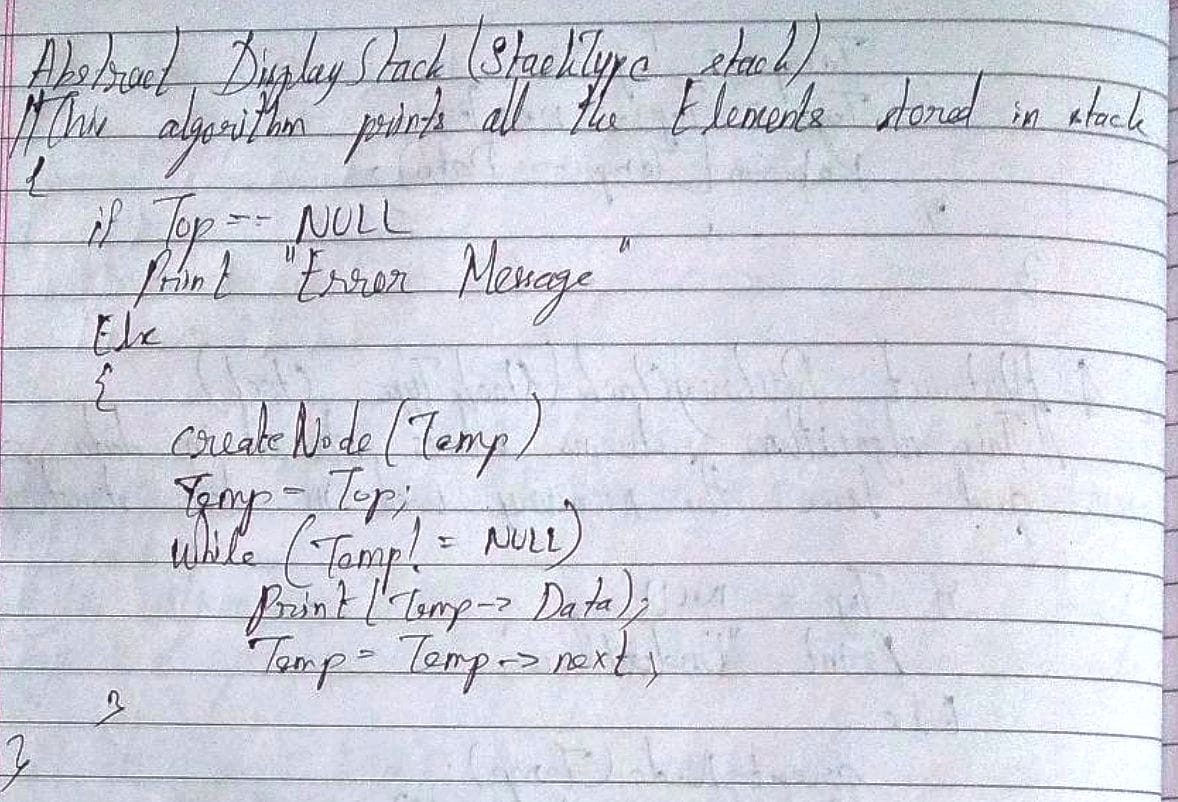 Abstract DisplayStack (StackType stack)
//This algorithm prints all the Elements stored in stack
{
if Top == NULL
Print "Error Message"
Else
{
createNode (Temp)
Temp = Top;
while (Temp! = NULL)
Print (Temp-> Data);
Temp = Temp -> next;
}
}